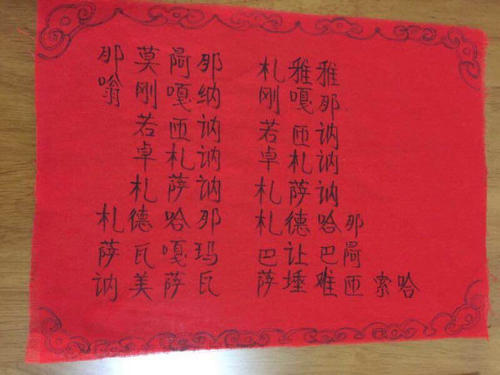 那莫阿那 札雅雅
嗡刚嘎纳 刚嘎那
若匝讷 若匝讷
卓札讷 卓札讷
札萨讷 札萨讷
札德哈那 札德哈那
萨瓦嘎玛 巴让巴阿
讷美萨瓦 萨埵难匝索哈